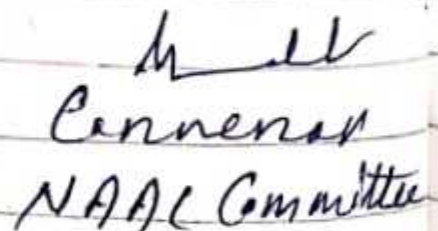 Convenor
NAAC Committee